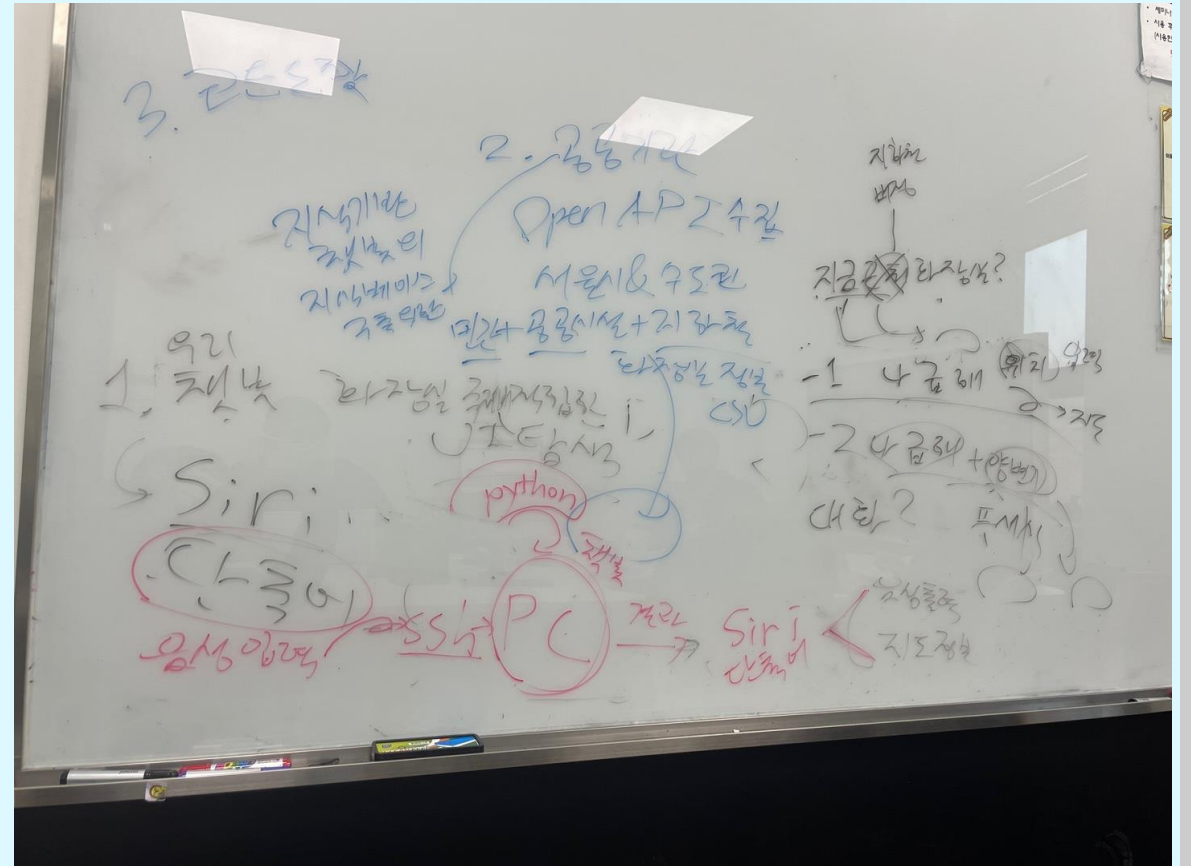 3.
2. 공공기관
Open API 수집
서울시 & 수도권
민간 + 공공시설 + 지하철
화장실 정보
CSV
지식기반
챗봇의
지식베이스
구축의한
1. 우리
챗봇
화장실
탐색
Siri...
단축어
음성입력
ssh
python
PC
챗봇
결과
Siri
단축어
음성출력
지도정보
지하철
버정
지금 화장실?
-1 나 급해 위치 우선
지도
-2 나 급해 + 양변기
대화? 푸세식